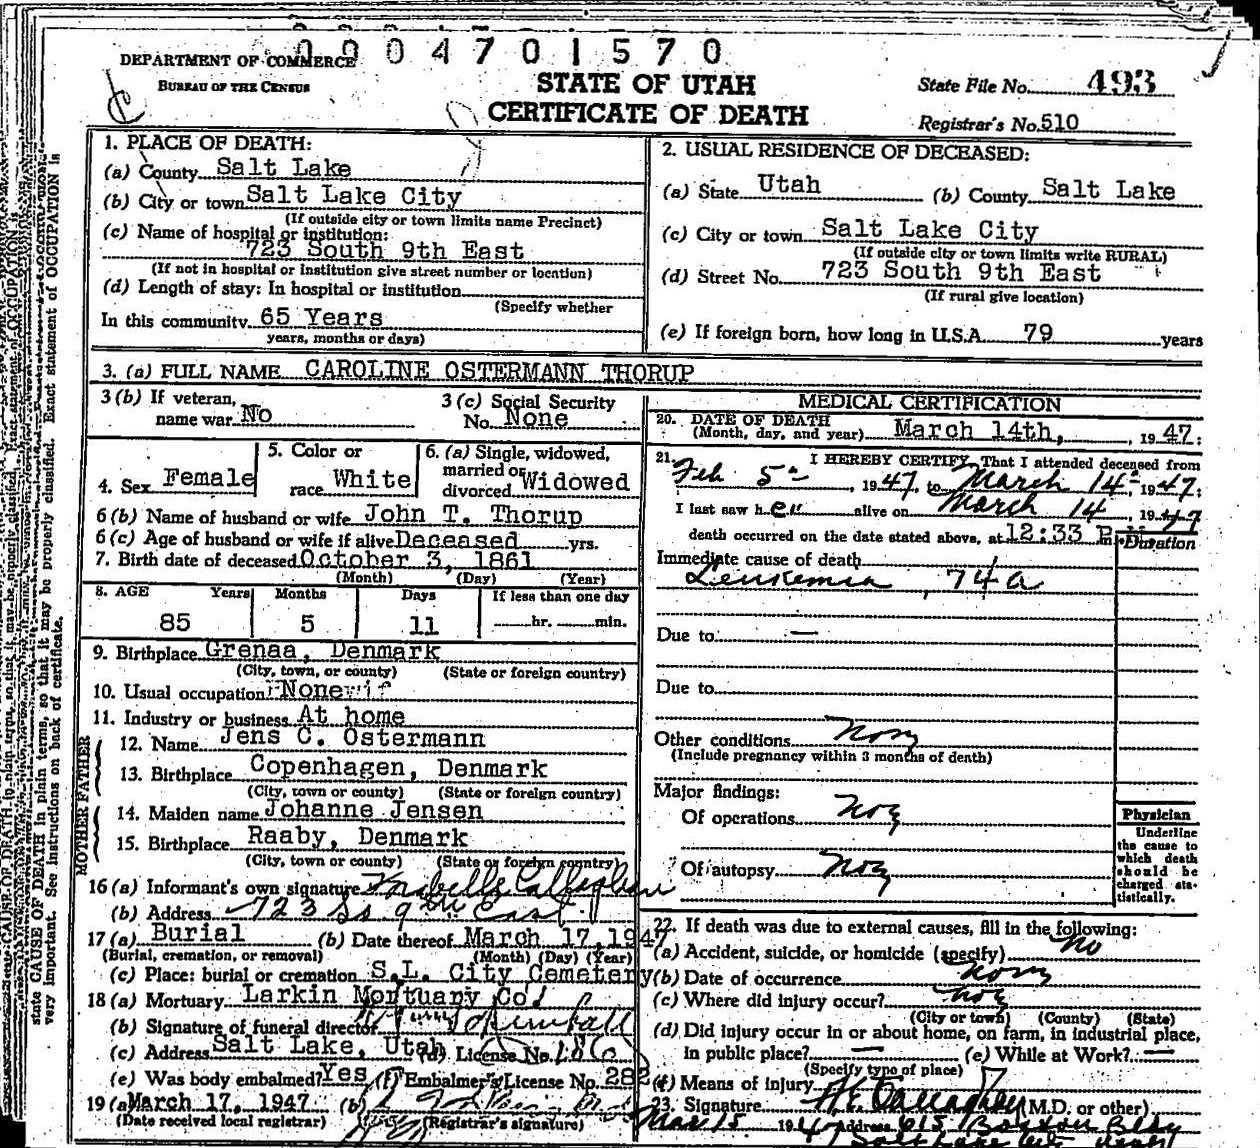 0004701570
DEPARTMENT OF COMMERCE
BUREAU OF THE CENSUS
STATE OF UTAH
CERTIFICATE OF DEATH
State File No. 493
Registrar's No. 510
1. PLACE OF DEATH:
(a) County Salt Lake
(b) City or town Salt Lake City
(If outside city or town limits name Precinct)
(c) Name of hospital or institution:
723 South 9th East
(If not in hospital or institution give street number or location)
(d) Length of stay: In hospital or institution
(Specify whether
In this community 65 Years
years, months or days)
2. USUAL RESIDENCE OF DECEASED:
(a) State Utah (b) County Salt Lake
(c) City or town Salt Lake City
(If outside city or town limits write RURAL)
(d) Street No. 723 South 9th East
(If rural give location)
(e) If foreign born, how long in U.S.A. 79 years
3. (a) FULL NAME CAROLINE OSTERMANN THORUP
3 (b) If veteran, name war No
3 (c) Social Security No. None
4. Sex Female
5. Color or race White
6. (a) Single, widowed, married or divorced Widowed
6 (b) Name of husband or wife John T. Thorup
6 (c) Age of husband or wife if alive Deceased yrs.
7. Birth date of deceased October 3, 1861
(Month) (Day) (Year)
8. AGE Years Months Days If less than one day
85 5 11 hr. min.
9. Birthplace Grenaa, Denmark
(City, town, or county) (State or foreign country)
10. Usual occupation None
11. Industry or business At home
FATHER
12. Name Jens C. Ostermann
13. Birthplace Copenhagen, Denmark
(City, town or county) (State or foreign country)
MOTHER
14. Maiden name Johanne Jensen
15. Birthplace Raaby, Denmark
(City, town or county) (State or foreign country)
16 (a) Informant's own signature
(b) Address 723 So 9th East
17 (a) Burial (b) Date thereof March 17, 1947
(Burial, cremation, or removal) (Month) (Day) (Year)
(c) Place: burial or cremation S.L. City Cemetery
18 (a) Mortuary Larkin Mortuary Co.
(b) Signature of funeral director
(c) Address Salt Lake, Utah (d) License No.
(e) Was body embalmed? Yes (f) Embalmer's License No. 282
19 (a) March 17, 1947 (b)
(Date received local registrar) (Registrar's signature)
MEDICAL CERTIFICATION
20. DATE OF DEATH
(Month, day, and year) March 14th, 1947:
21. I HEREBY CERTIFY, That I attended deceased from
Feb 5th, 1947, to March 14th, 1947:
I last saw her alive on March 14, 1947
death occurred on the date stated above, at 12:33 P.m.
Duration
Immediate cause of death
Leukemia, 74a
Due to —
Due to
Other conditions
(Include pregnancy within 3 months of death)
Major findings:
Of operations
Of autopsy
Physician
Underline
the cause to
which death
should be
charged sta-
tistically.
22. If death was due to external causes, fill in the following:
(a) Accident, suicide, or homicide (specify) No
(b) Date of occurrence
(c) Where did injury occur?
(City or town) (County) (State)
(d) Did injury occur in or about home, on farm, in industrial place,
in public place? — (e) While at Work? —
(Specify type of place)
(f) Means of injury
23. Signature (M.D. or other)
Mar 15 1947 Address 615 Boston Bldg
Salt Lake City, Utah
state CAUSE OF DEATH in plain terms, so that it may be properly classified. Exact statement of OCCUPATION is
very important. See instructions on back of certificate.